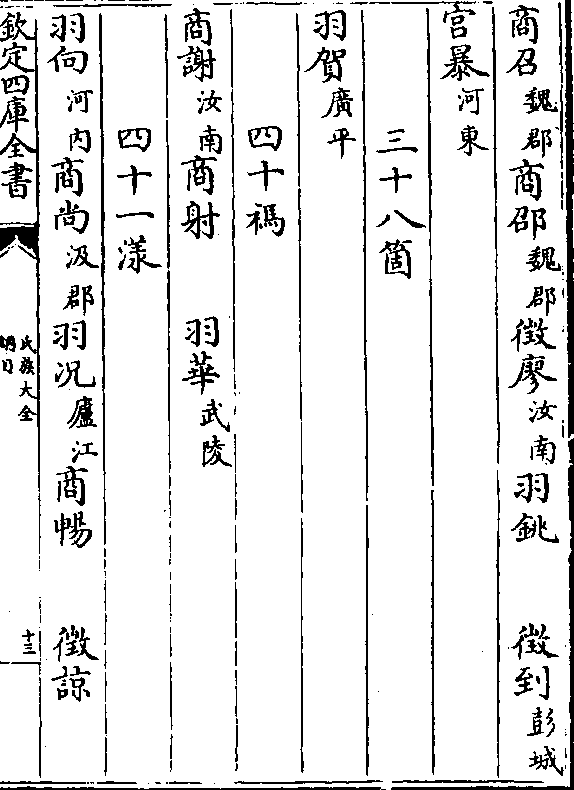 商召魏郡商邵魏郡徵廖汝南羽銚　徵到彭城
宮暴河東
三十八箇
羽賀廣平
四十禡
商謝汝南商射　羽華武陵
四十一漾
羽向河内商尚汲郡羽况廬江商暢　徵諒
欽定四庫全書
氏族大全
綱目
十三